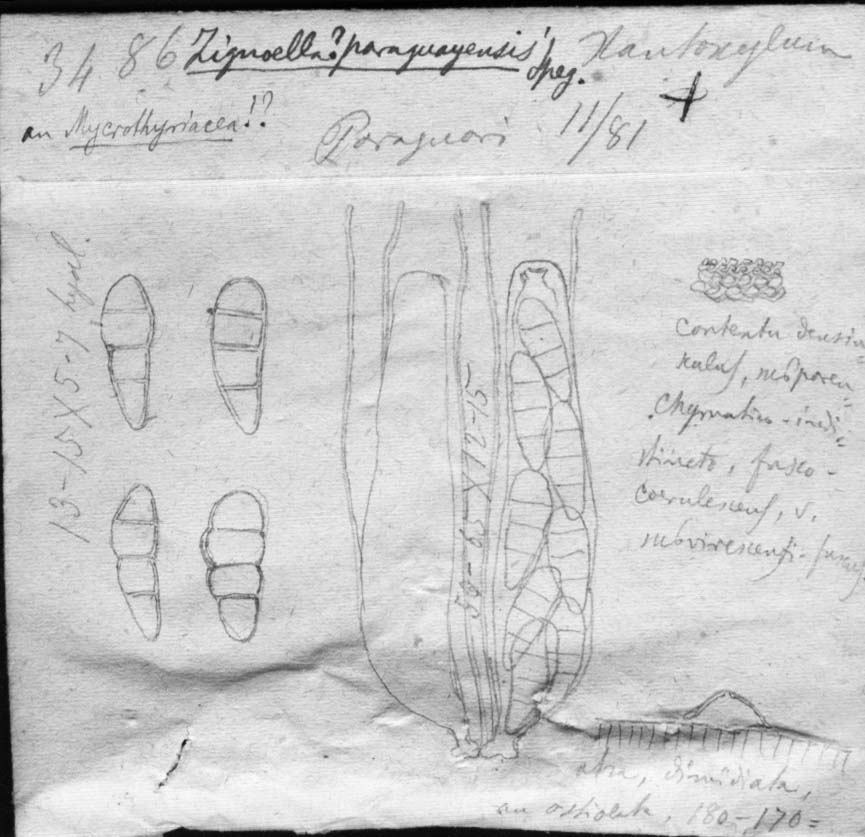 3486 Zignoella? paraguayensis! Speg. Xantoxylum
an Mycrothyriacea!?
Paraguari 11/81
13-15X5-7 hyal.
50-65X12-15
contextu densiu-
chymatico-indi-
stincto, fusco-
coerulescens, v.
subvirescenti-
atra, dimidiata,
an ostiolata, 180-170=